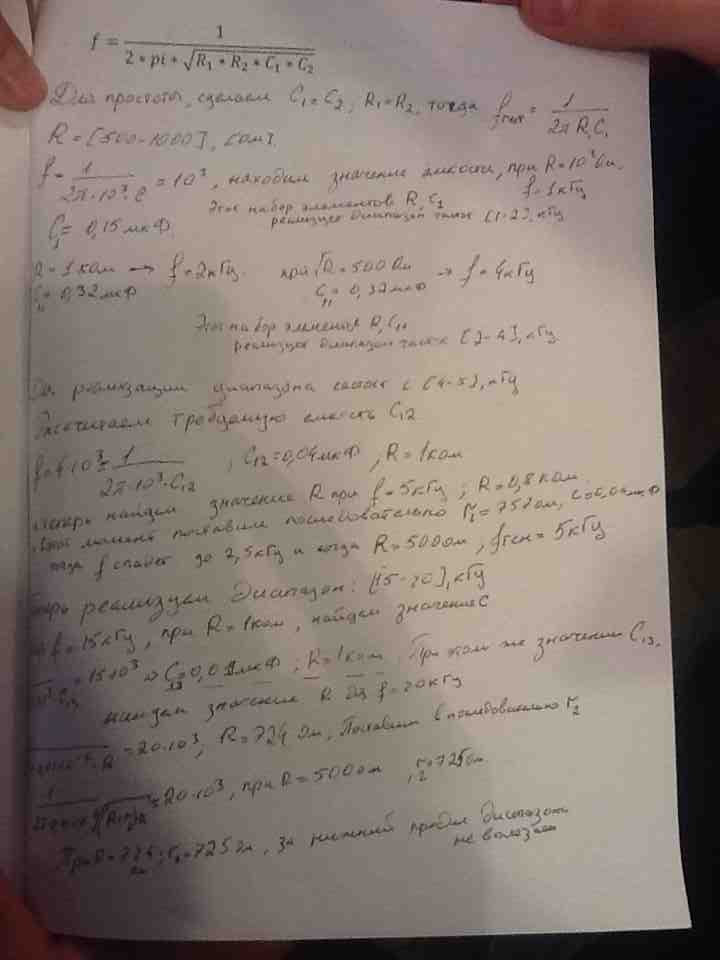 f = 1 / (2 * pi * √(R₁ * R₂ * C₁ * C₂))
Для простоты, сделаем C₁ = C₂, R₁ = R₂, тогда f = 1 / (2π R₁ C₁)
R = [500-1000], [Ом].
f = 1 / (2π·10³·C) = 10³, находим значение емкости, при R = 10³ Ом.
f = 1 кГц
C₁ = 0,15 мкФ. Этот набор элементов R, C₁
реализует диапазон частот [1-2], кГц
R = 1 ком → f = 2 кГц. при R = 500 Ом → f = 4 кГц
C₁₁ = 0,32 мкФ C₁₁ = 0,32 мкФ
Этот набор элементов R, C₁₁
реализует диапазон частот [2-4], кГц.
реализации диапазона частот с [4-5], кГц
требуемую емкость C₁₂
f = 4·10³ = 1 / (2π·10³·C₁₂), C₁₂ = 0,04 мкФ, R = 1 ком
теперь найдем значение R при f = 5 кГц; R = 0,8 ком.
момент поставим последовательно r₁ = 757 ом, C = 0,04 мкФ
тогда f до 2,5 кГц и когда R = 500 ом, fген = 5 кГц
реализуем диапазон: [15-20], кГц
f = 15 кГц, при R = 1 ком, найдем значение C
= 15·10³ ⇒ C₁₃ = 0,01 мкФ; R = 1 ком. При том же значении C₁₃,
найдем значение R для f = 20 кГц
= 20·10³, R = 724 Ом, Поставим последовательно r₂
= 20·10³, при R = 500 ом, r₂ = 725 ом.
При R = 725 Ом, за нижний предел диапазона
не вылезаем